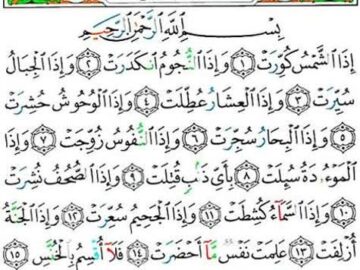 بِسْمِ ٱللَّهِ ٱلرَّحْمَٰنِ ٱلرَّحِيمِ
إِذَا ٱلشَّمْسُ كُوِّرَتْ ١ وَإِذَا ٱلنُّجُومُ ٱنكَدَرَتْ ٢ وَإِذَا ٱلْجِبَالُ
سُيِّرَتْ ٣ وَإِذَا ٱلْعِشَارُ عُطِّلَتْ ٤ وَإِذَا ٱلْوُحُوشُ حُشِرَتْ
٥ وَإِذَا ٱلْبِحَارُ سُجِّرَتْ ٦ وَإِذَا ٱلنُّفُوسُ زُوِّجَتْ ٧ وَإِذَا
ٱلْمَوْءُۥدَةُ سُئِلَتْ ٨ بِأَىِّ ذَنۢبٍ قُتِلَتْ ٩ وَإِذَا ٱلصُّحُفُ نُشِرَتْ
١٠ وَإِذَا ٱلسَّمَآءُ كُشِطَتْ ١١ وَإِذَا ٱلْجَحِيمُ سُعِّرَتْ ١٢ وَإِذَا ٱلْجَنَّةُ
أُزْلِفَتْ ١٣ عَلِمَتْ نَفْسٌ مَّآ أَحْضَرَتْ ١٤ فَلَآ أُقْسِمُ بِٱلْخُنَّسِ ١٥